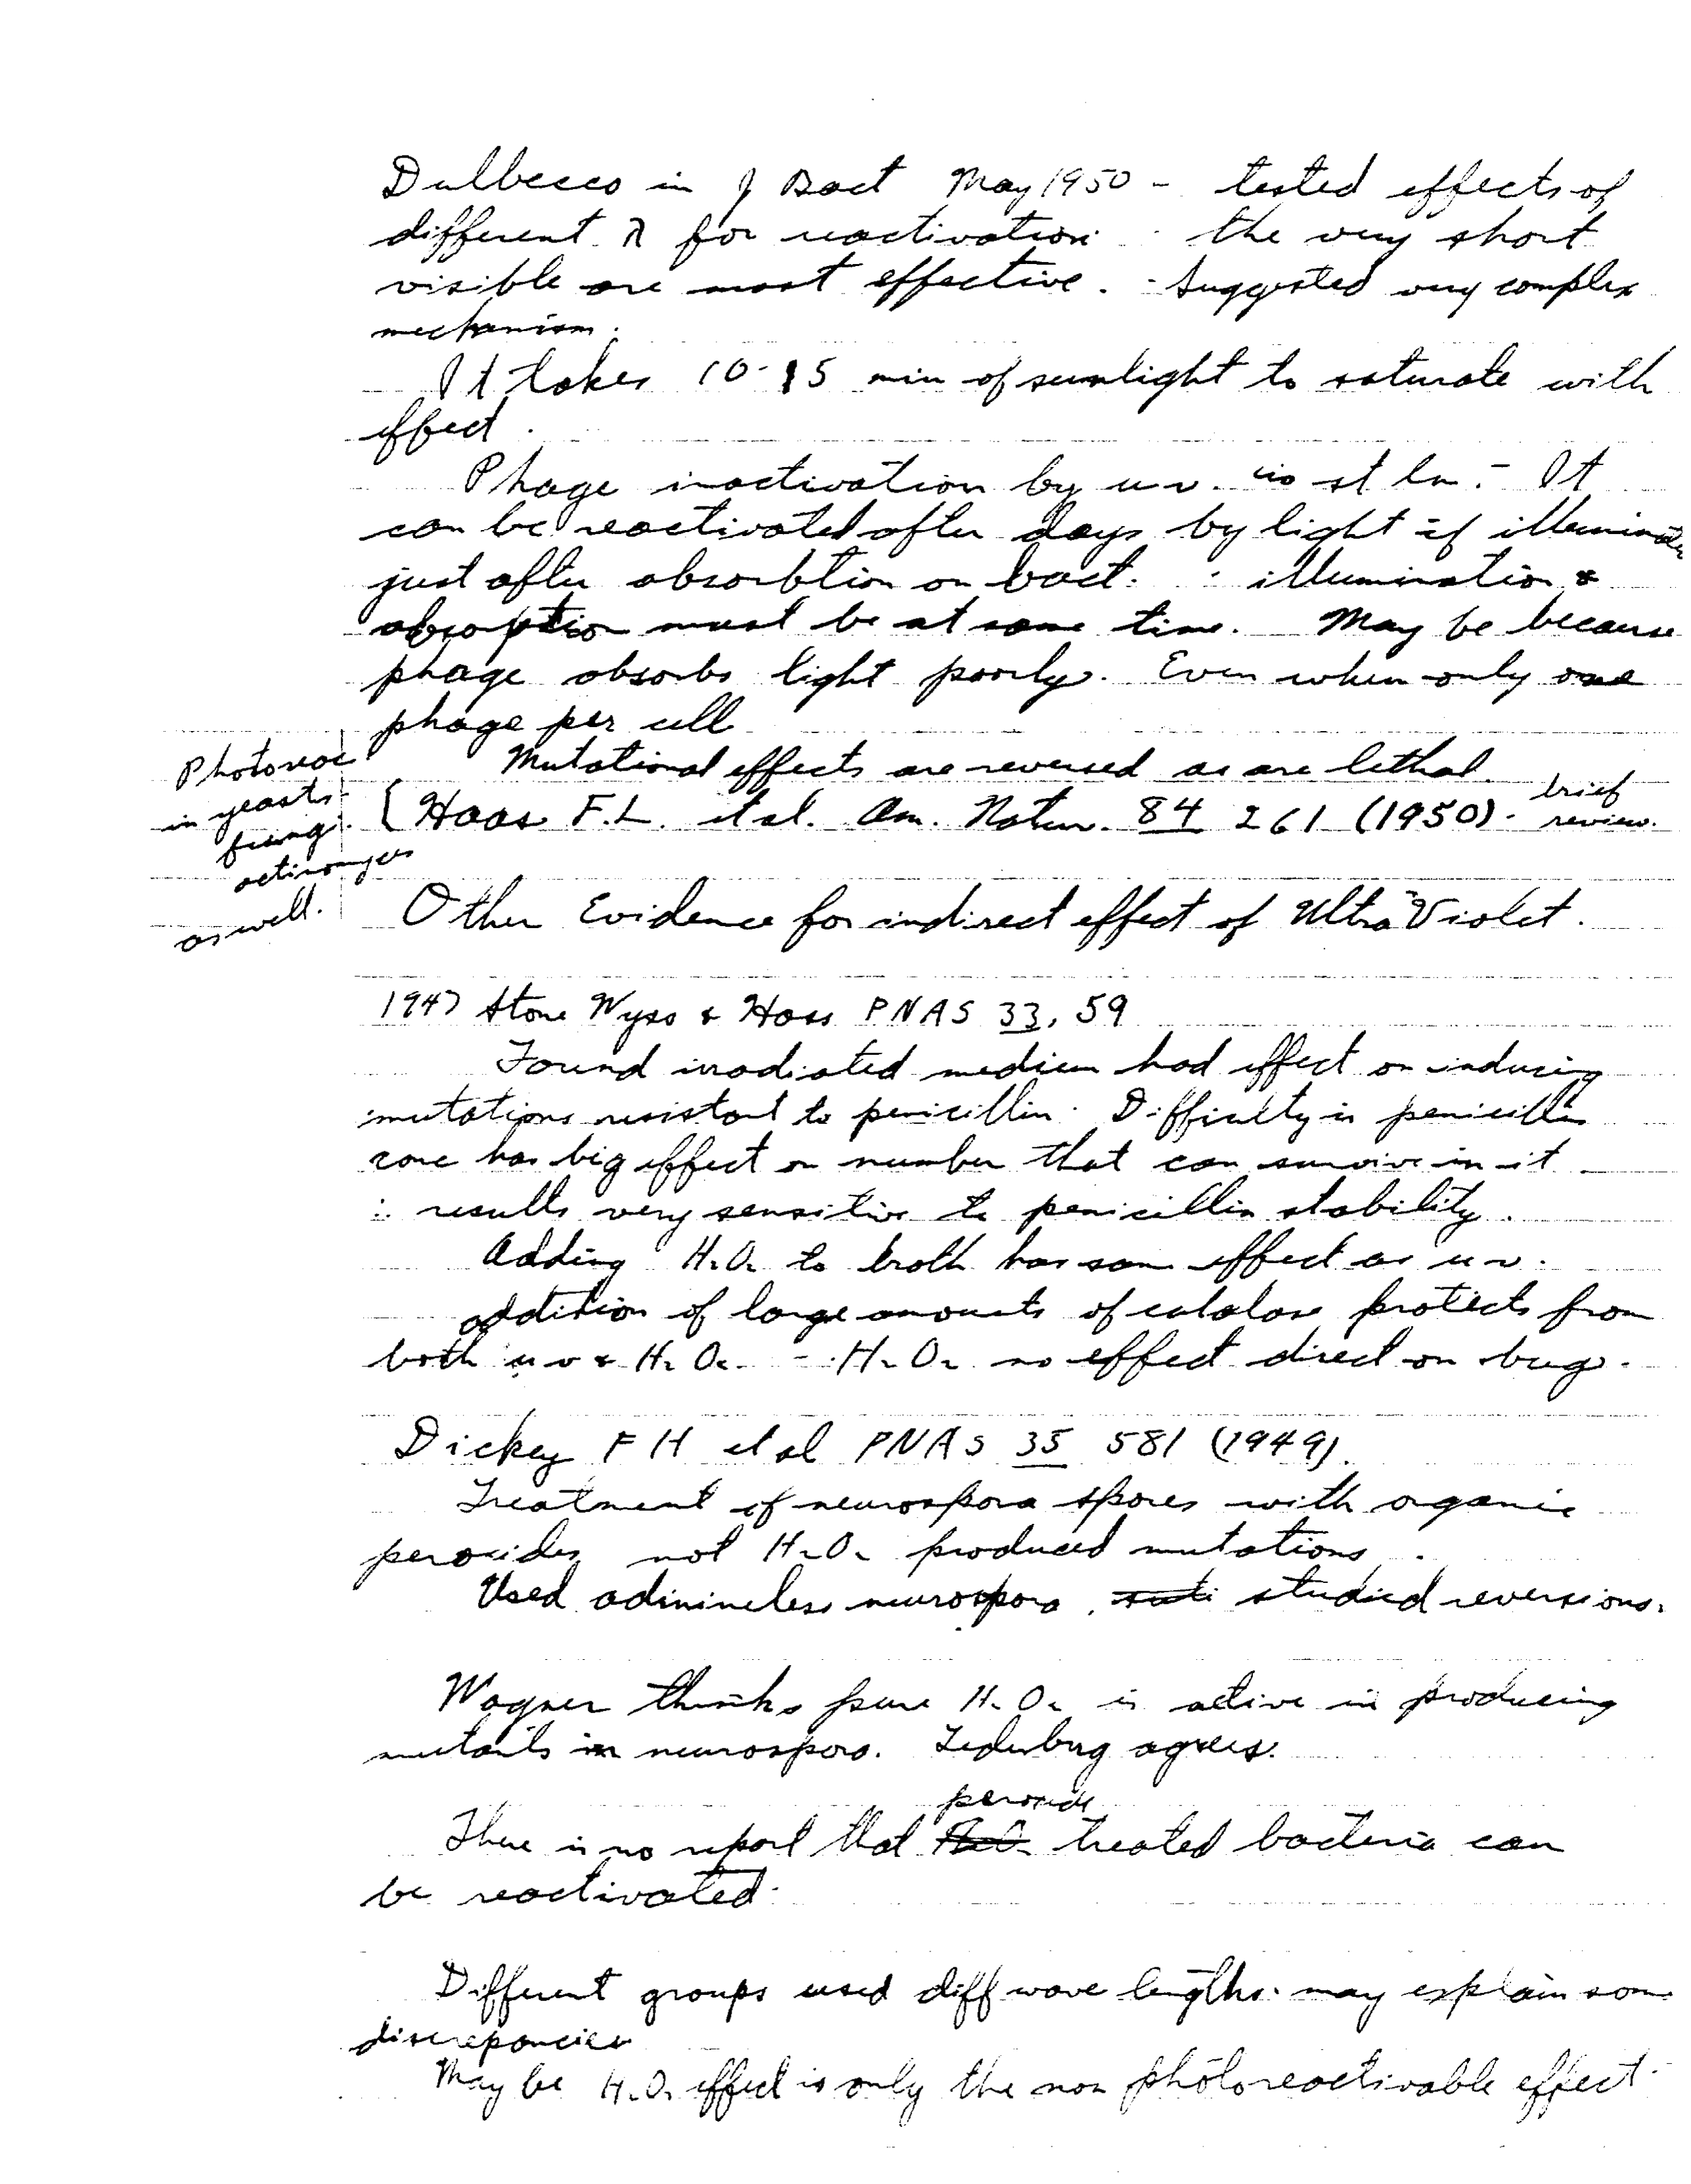 Dulbecco in J Bact May 1950 - tested effects of
different λ for reactivation - the very short
visible are most effective. - Suggested very complex
mechanism.
It takes 10-15 min of sunlight to saturate with
effect.
Phage inactivation by uv. is st ln. - It
can be reactivated after days by light if illuminated
just after absorbtion on bact. ∴ illumination &
absorption must be at same time. May be because
phage absorbs light poorly. Even when only one
phage per cell
Mutational effects are reversed as are lethal.
[Haas F.L. et al. Am. Natur. 84 261 (1950). brief
review.
Photoreac
in yeasts
fungi
actinomyces
as well.
Other Evidence for indirect effect of Ultra Violet.
1947 Stone Wyss & Haas PNAS 33, 59
Found irradiated medium had effect on inducing
mutations resistant to penicillin. Difficulty is penicillin
conc has big effect on number that can survive in it
∴ results very sensitive to penicillin stability.
Adding H2O2 to broth has same effect as uv.
addition of large amounts of catalase protects from
both uv & H2O2. - H2O2 no effect direct on bug.
Dickey F H et al PNAS 35 581 (1949).
Treatment of neurospora spores with organic
peroxides not H2O2 produced mutations.
Used adinineless neurospora. studied reversions.
Wagner thinks pure H2O2 is active in producing
mutants in neurospora. Lederburg agrees.
peroxide
There is no report that treated bacteria can
be reactivated.
Different groups used diff wave lengths. may explain some
discrepancies
May be H2O2 effect is only the non photoreactivable effect.